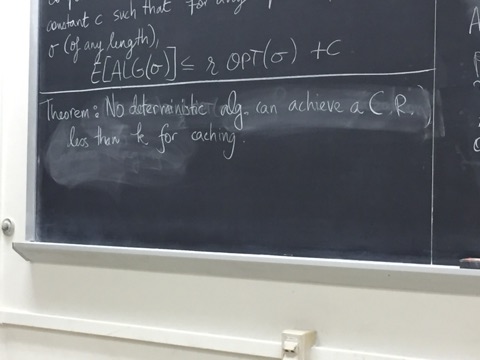 constant c such that for any
σ (of any length),
E[ALG(σ)] ≤ r OPT(σ) + C
Theorem: No deterministic alg. can achieve a C.R.
less than k for caching.